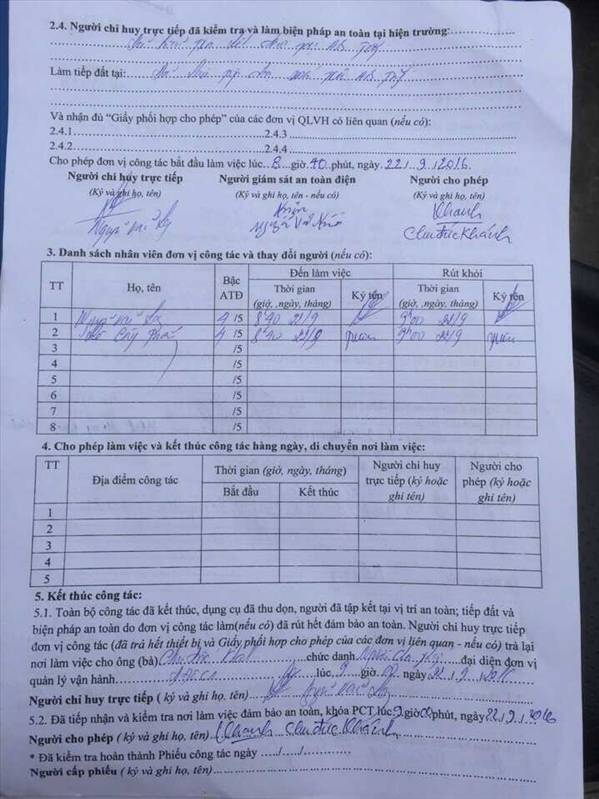 2.4. Người chỉ huy trực tiếp đã kiểm tra và làm biện pháp an toàn tại hiện trường:
Làm tiếp đất tại:
Và nhận đủ “Giấy phối hợp cho phép” của các đơn vị QLVH có liên quan (nếu có):
2.4.1 2.4.3
2.4.2 2.4.4
Cho phép đơn vị công tác bắt đầu làm việc lúc 8 giờ 40 phút, ngày 22 / 9 / 2016
Người chỉ huy trực tiếp Người giám sát an toàn điện Người cho phép
(Ký và ghi họ, tên) (Ký và ghi họ, tên - nếu có) (Ký và ghi họ, tên)
Khanh
Chu Đức Khánh
3. Danh sách nhân viên đơn vị công tác và thay đổi người (nếu có):
TT Họ, tên Bậc ATĐ Đến làm việc Rút khỏi
Thời gian (giờ, ,ngày, tháng) Ký tên Thời gian (giờ, ,ngày, tháng) Ký tên
1 4 /5 8h40 9h00
2 4 /5 8h40 9h00
3 /5
4 /5
5 /5
6 /5
7 /5
8 /5
4. Cho phép làm việc và kết thúc công tác hàng ngày, di chuyển nơi làm việc:
TT Địa điểm công tác Thời gian (giờ, ngày, tháng) Người chỉ huy trực tiếp (ký hoặc ghi tên) Người cho phép (ký hoặc ghi tên)
Bắt đầu Kết thúc
1
2
3
4
5
5. Kết thúc công tác:
5.1. Toàn bộ công tác đã kết thúc, dụng cụ đã thu dọn, người đã tập kết tại vị trí an toàn; tiếp đất và
biện pháp an toàn do đơn vị công tác làm(nếu có) đã rút hết đảm bảo an toàn. Người chỉ huy trực tiếp
đơn vị công tác (đã trả hết thiết bị và Giấy phối hợp cho phép của các đơn vị liên quan - nếu có) trả lại
nơi làm việc cho ông (bà) chức danh đại diện đơn vị
quản lý vận hành lúc 9 giờ ngày 22 / 9 / 2016
Người chỉ huy trực tiếp ( ký và ghi họ, tên)
5.2. Đã tiếp nhận và kiểm tra nơi làm việc đảm bảo an toàn, khóa PCT lúc 9 giờ 00 phút, ngày 22 / 9 / 2016
Người cho phép ( ký và ghi họ, tên) Khanh Chu Đức Khánh
* Đã kiểm tra hoàn thành Phiếu công tác ngày ..../..../
Người cấp phiếu ( ký và ghi họ, tên)